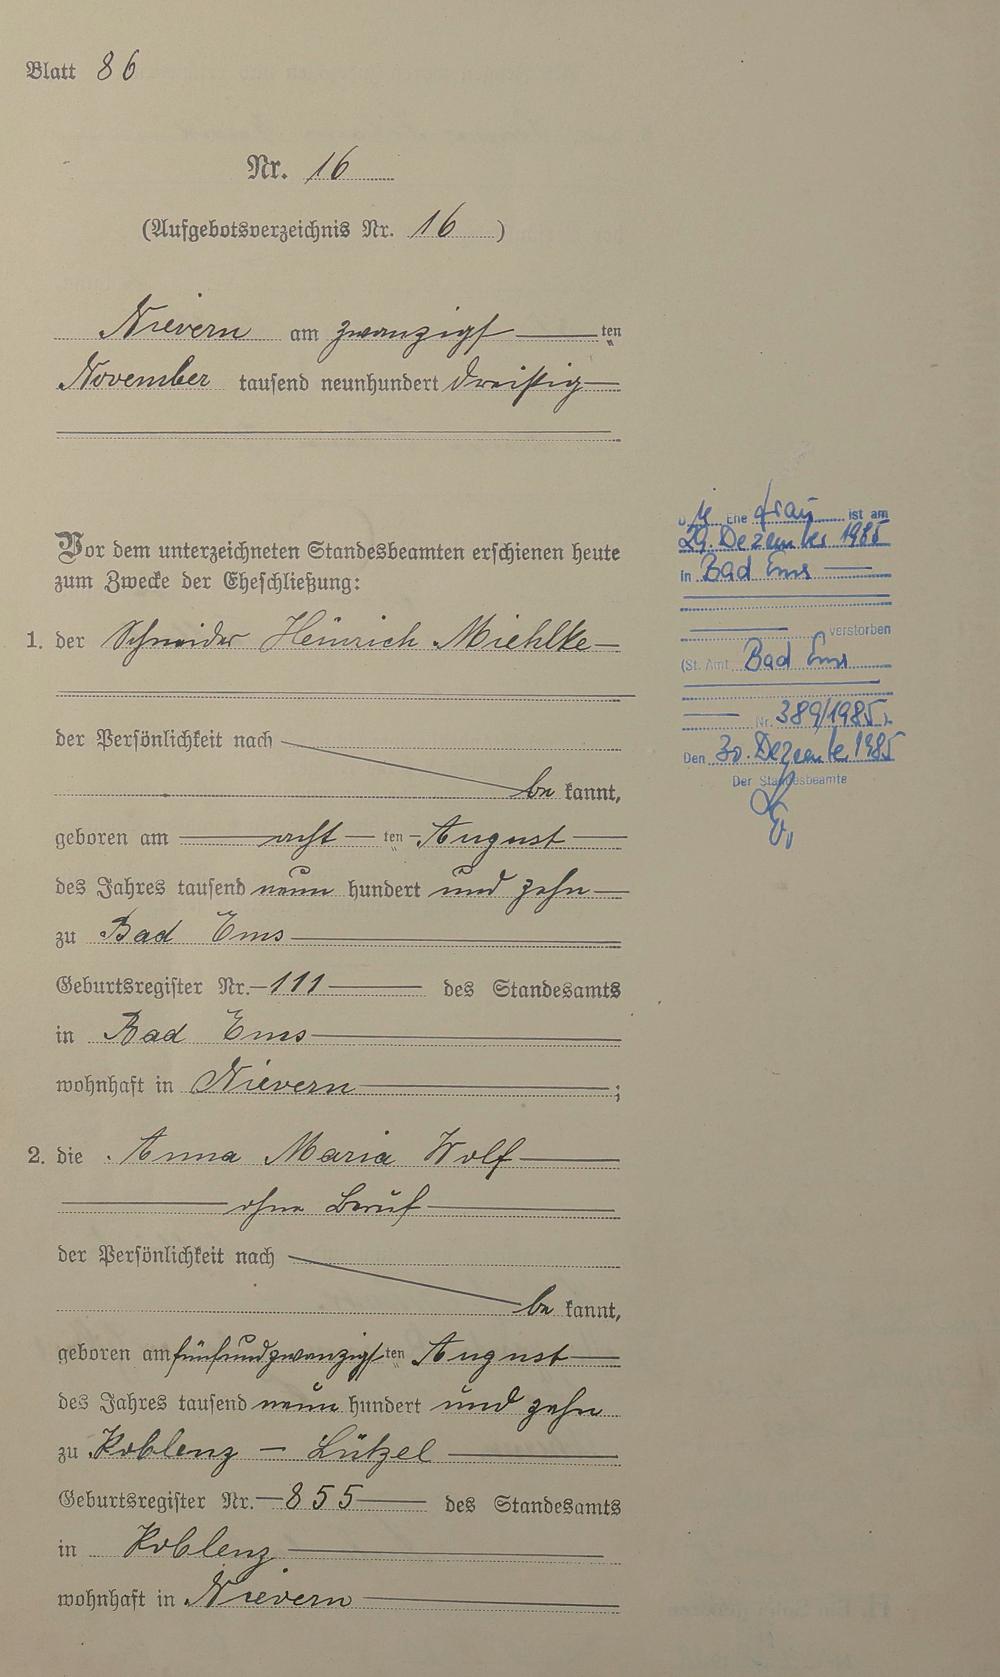 Blatt 86
Nr. 16
(Aufgebotsverzeichnis Nr. 16)
Nievern am zwanzigsten
November tausend neunhundert dreißig
Vor dem unterzeichneten Standesbeamten erschienen heute
zum Zwecke der Eheschließung:
1. der Schneider Heinrich Miehlke
der Persönlichkeit nach
be kannt,
geboren am acht ten August
des Jahres tausend neun hundert und zehn
zu Bad Ems
Geburtsregister Nr. 111 des Standesamts
in Bad Ems
wohnhaft in Nievern ;
2. die Anna Maria Wolf
ohne Beruf
der Persönlichkeit nach
be kannt,
geboren am fünfundzwanzigsten August
des Jahres tausend neun hundert und zehn
zu Koblenz - Lützel
Geburtsregister Nr. 855 des Standesamts
in Koblenz
wohnhaft in Nievern
Die Ehefrau ist am
29. Dezember 1985
in Bad Ems
verstorben
(St. Amt Bad Ems
Nr. 389/1985)
Den 30. Dezember 1985
Der Standesbeamte